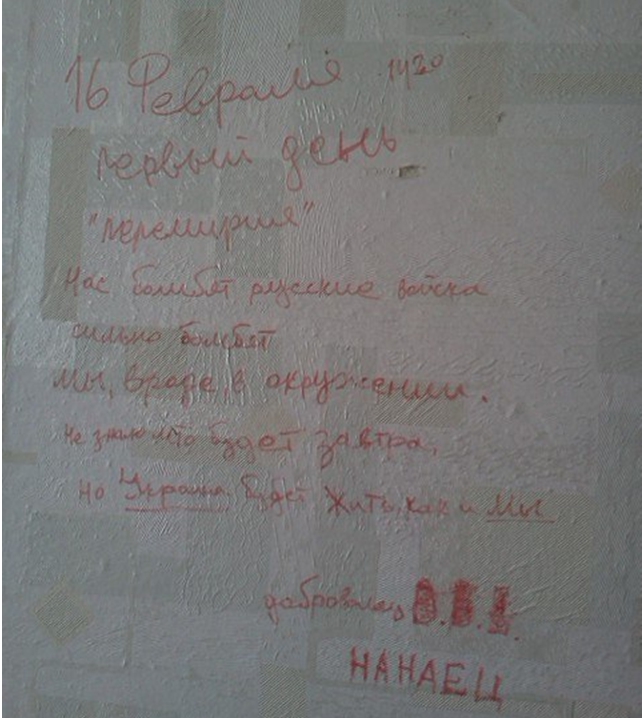 16 Февраля 14 20
первый день
"перемирия"
Нас бомбят русские войска
сильно бомбят
Мы, вроде, в окружении.
Не знаю что будет завтра,
Но Украина будет Жить, как и Мы
доброволец
НАНАЕЦ